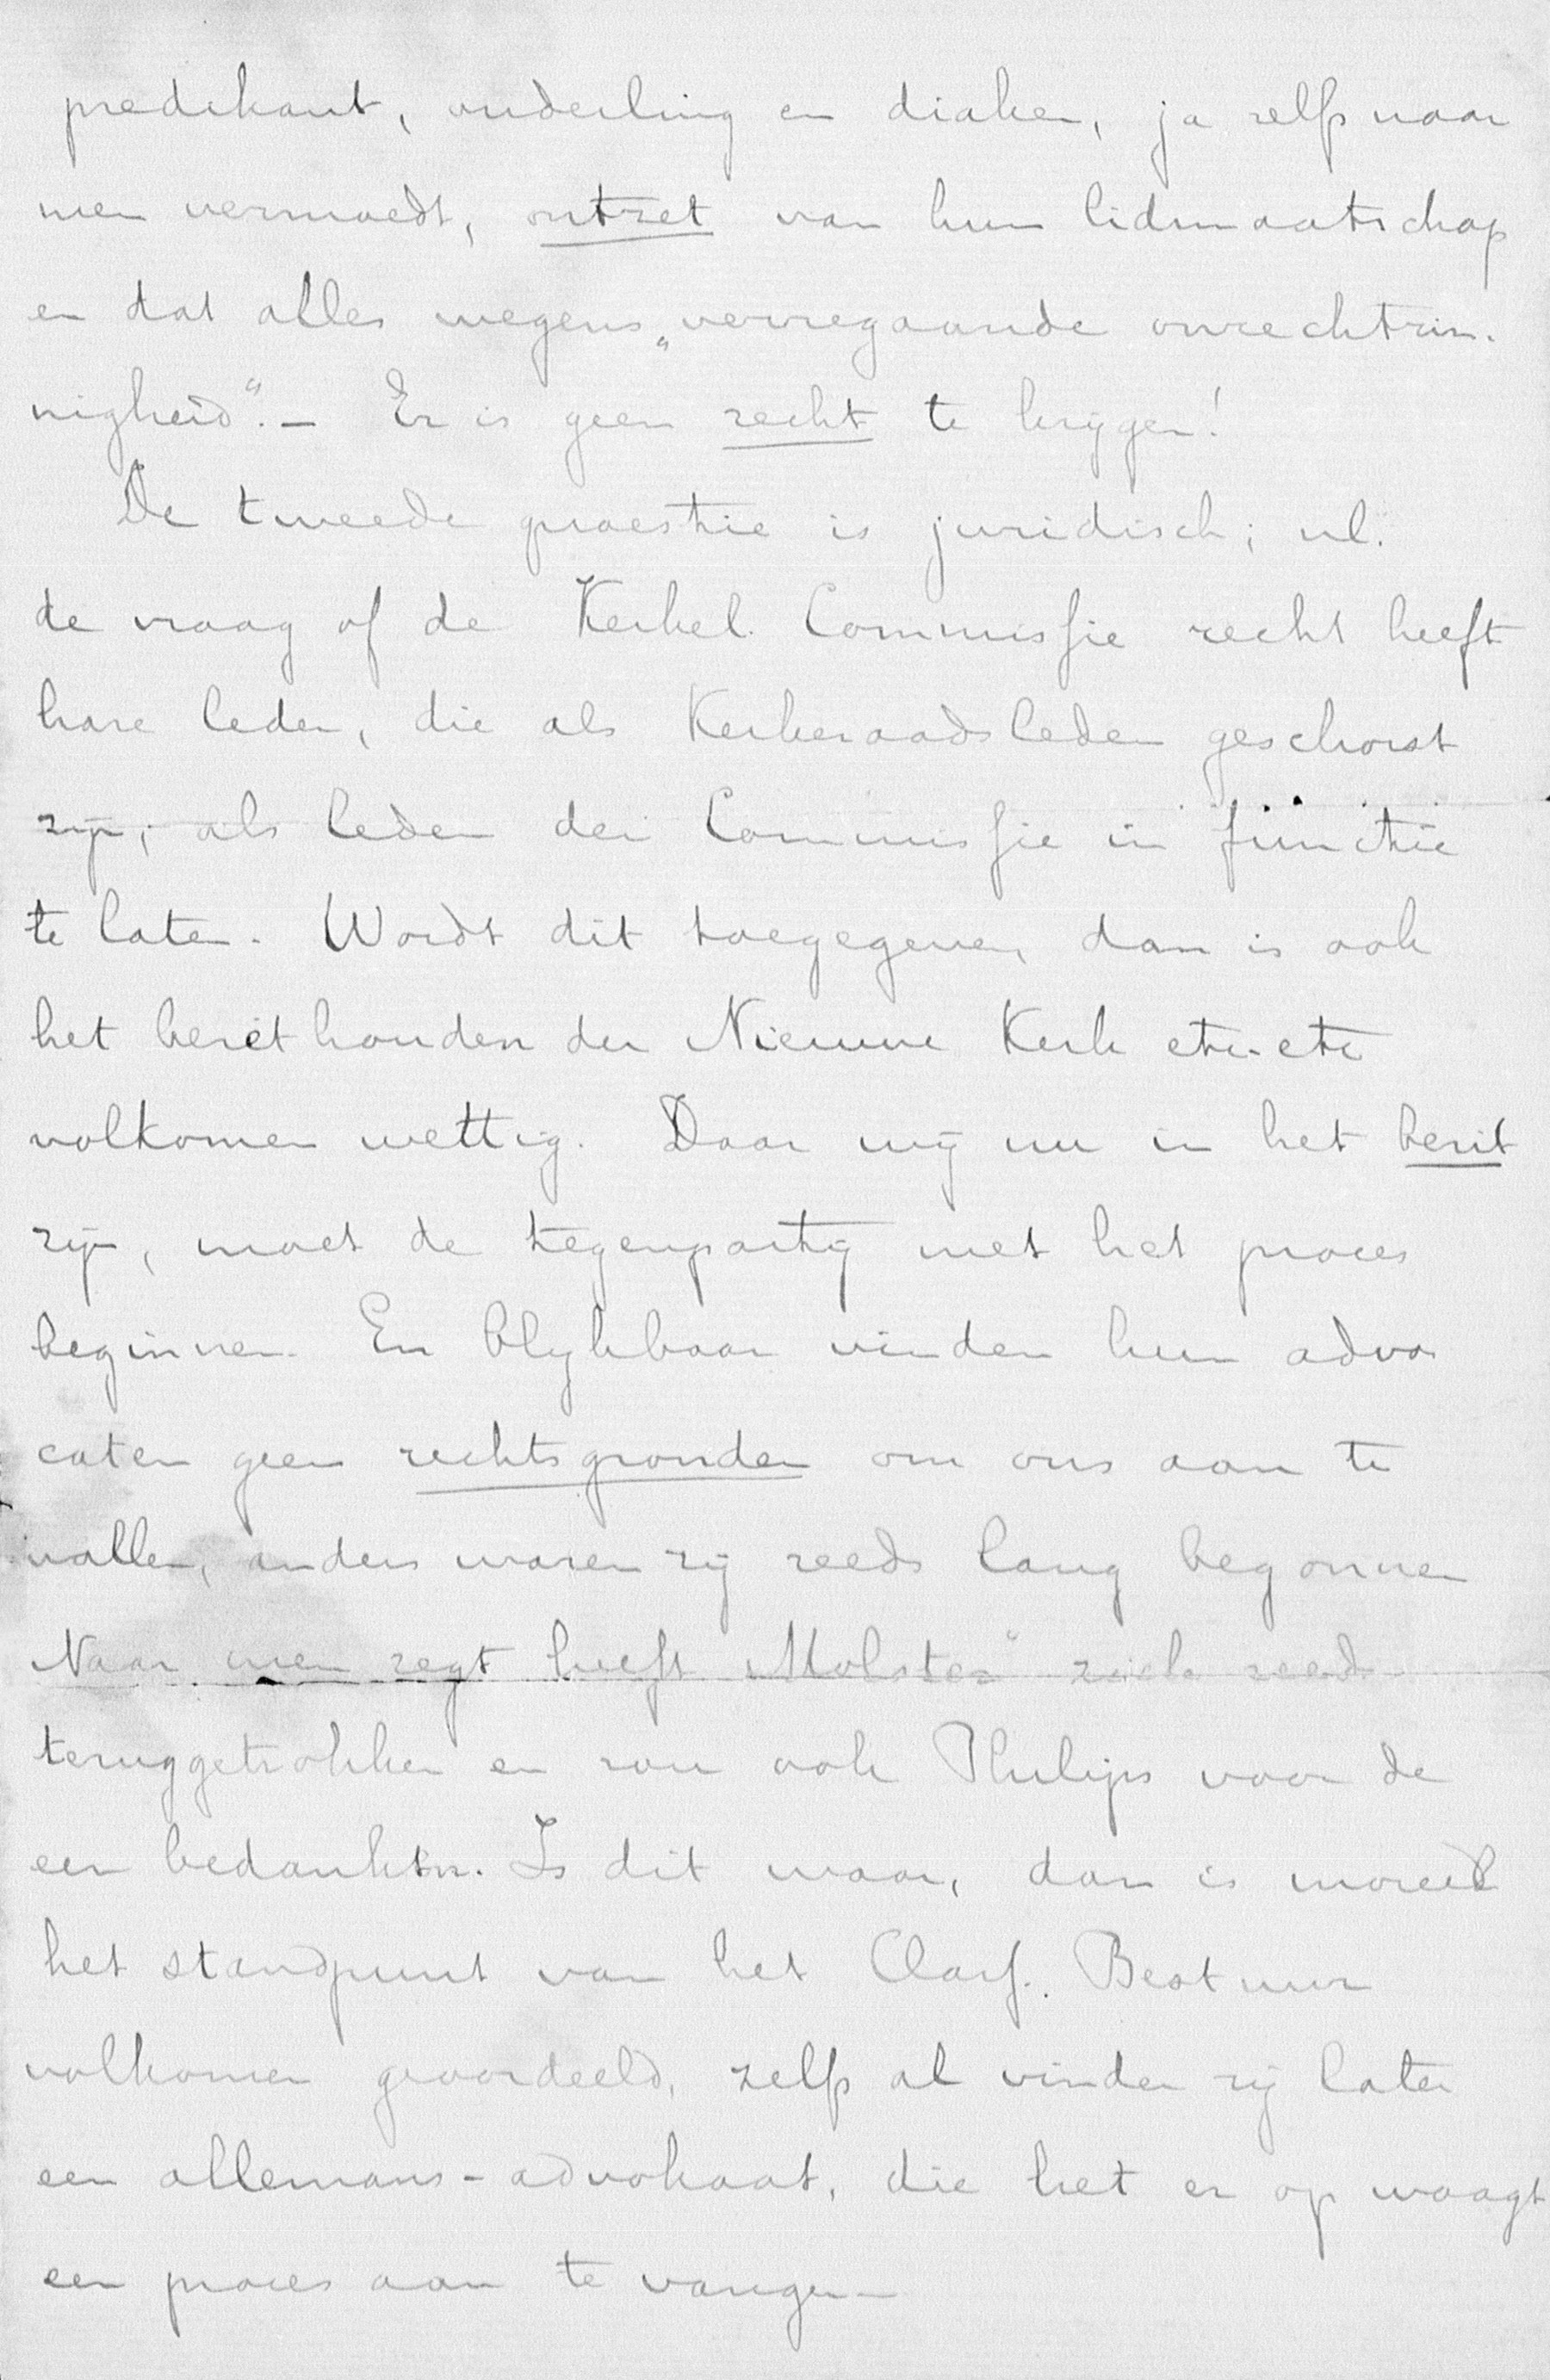 predikant, ouderling en diaken, ja zelfs naar
men vermoedt, ontzet van hun lidmaatschap
en dat alles wegens „verregaande onrechtzin-
nigheid“. — Er is geen recht te krijgen!
De tweede quaestie is juridisch; nl.
de vraag of de Kerkel. Commissie recht heeft
hare leden, die als Kerkeraadsleden geschorst
zijn, als leden der Commissie in functie
te laten. Wordt dit toegegeven, dan is ook
het bezethouden der Nieuwe Kerk etc. etc
volkomen wettig. Daar wij nu in het bezit
zijn, moet de tegenpartij met het proces
beginnen. En blijkbaar vinden hun advo
caten geen rechtsgronden om ons aan te
vallen, anders waren zij reeds lang begonnen
Naar men zegt heeft „Molster“ zich reeds
teruggetrokken en zou ook Philips voor de
eer bedankten. Is dit waar, dan is moreel
het standpunt van het Class. Bestuur
volkomen geoordeeld, zelfs al vinden zij later
een allemans-advokaat, die het er op waagt
een proces aan te vangen —